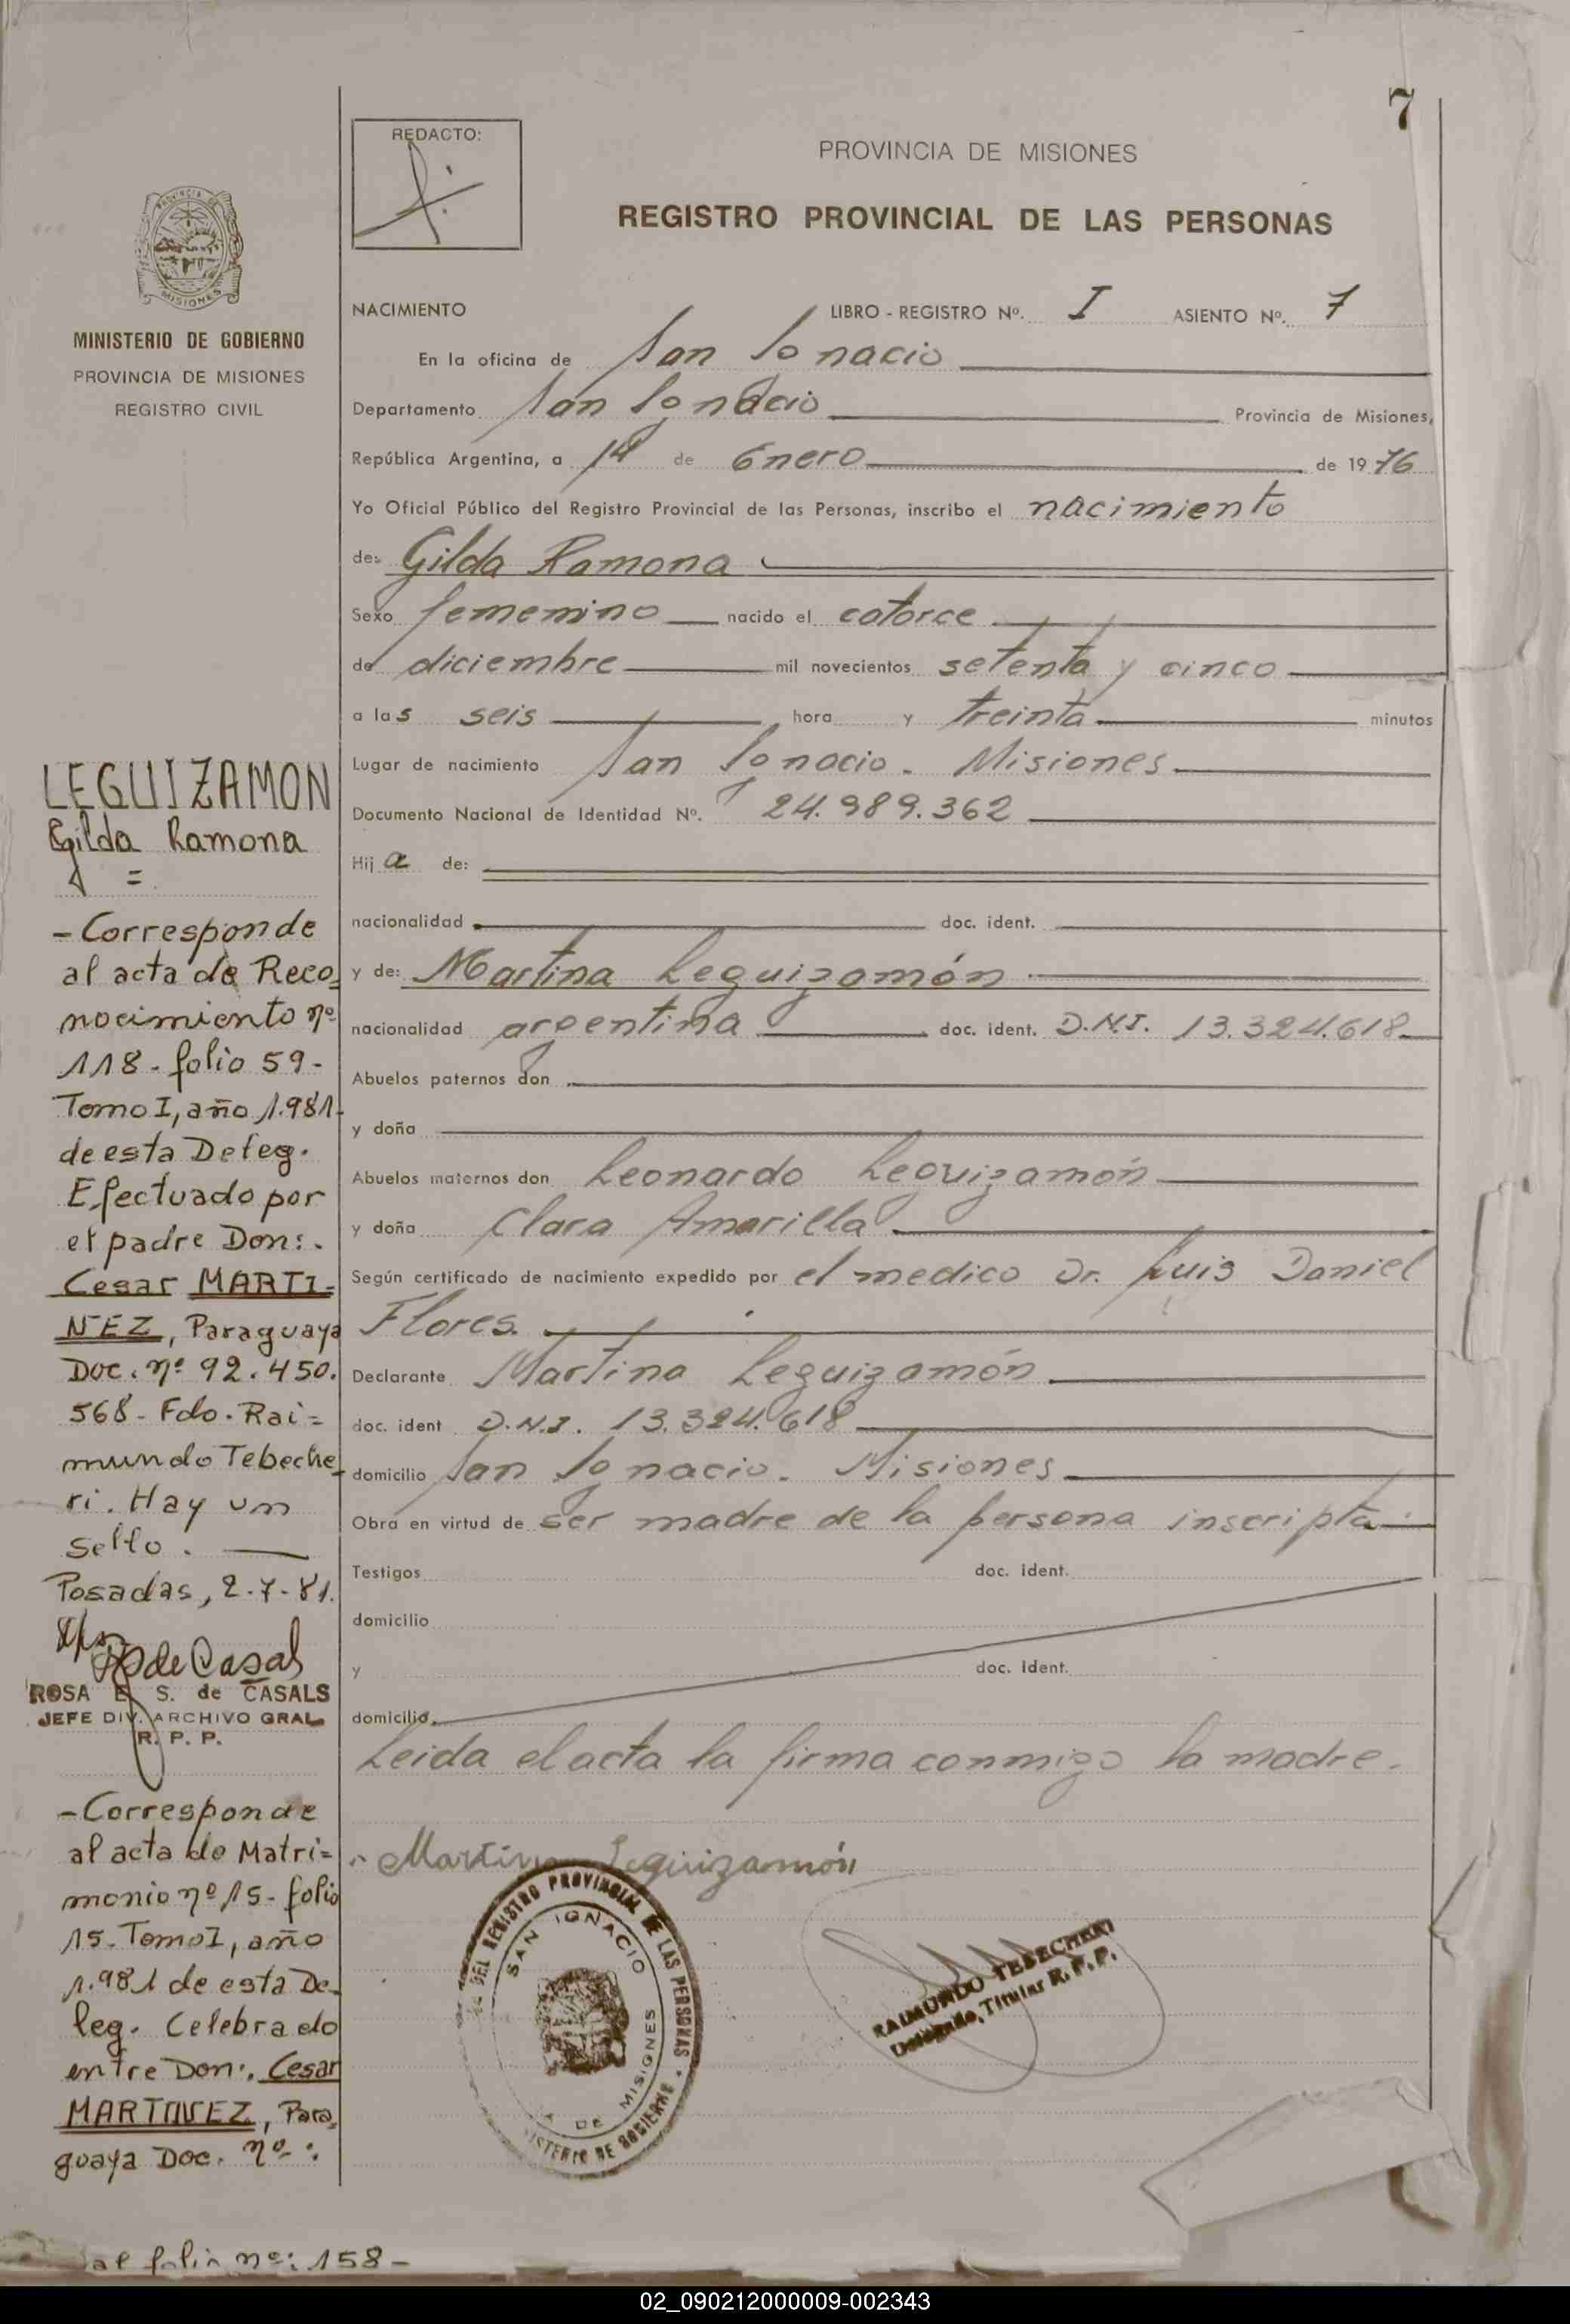 7
REDACTO:
PROVINCIA DE MISIONES
REGISTRO PROVINCIAL DE LAS PERSONAS
PROVINCIA DE
MISIONES
MINISTERIO DE GOBIERNO
PROVINCIA DE MISIONES
REGISTRO CIVIL
NACIMIENTO LIBRO - REGISTRO Nº. I ASIENTO Nº. 7
En la oficina de San Ignacio
Departamento San Ignacio Provincia de Misiones,
República Argentina, a 14 de Enero de 1976
Yo Oficial Público del Registro Provincial de las Personas, inscribo el nacimiento
de: Gilda Ramona
Sexo femenino nacido el catorce
de diciembre mil novecientos setenta y cinco
a las seis hora y treinta minutos
Lugar de nacimiento San Ignacio. Misiones
Documento Nacional de Identidad Nº. 24.989.362
Hija de:
nacionalidad doc. ident.
y de: Martina Leguizamón
nacionalidad argentina doc. ident. D.N.I. 13.324.618
Abuelos paternos don
y doña
Abuelos maternos don Leonardo Leguizamón
y doña Clara Amarilla
Según certificado de nacimiento expedido por el medico Dr. Luis Daniel
Flores.
Declarante Martina Leguizamón
doc. ident D.N.I. 13.324.618
domicilio San Ignacio. Misiones
Obra en virtud de ser madre de la persona inscripta
Testigos doc. ident.
domicilio
y doc. ident.
domicilio
Leida el acta la firma conmigo la madre.
Martina Leguizamón
DEL REGISTRO PROVINCIAL DE LAS PERSONAS
SAN IGNACIO
DE MISIONES
DE GOBIERNO
RAIMUNDO TEBECHERI
Delegado, Titular R. P. P.
LEGUIZAMON
Gilda Ramona
=
- Corresponde
al acta de Reco=
nocimiento nº
118 - folio 59 -
Tomo I, año 1.981-
de esta Deleg.
Efectuado por
el padre Don:.
Cesar MARTI=
NEZ, Paraguaya
Doc. nº 92.450.
568 - Fdo. Rai=
mundo Tebeche=
ri. Hay un
sello.
Posadas, 2-7-81.
de Casals
ROSA E. S. de CASALS
JEFE DIV. ARCHIVO GRAL
R. P. P.
- Corresponde
al acta de Matri=
monio nº 15 - folio
15. Tomo I, año
1.981 de esta De=
leg. Celebrado
entre Don:. Cesar
MARTINEZ, Para=
guaya Doc. nº :
al folio nº: 158-
02_090212000009-002343